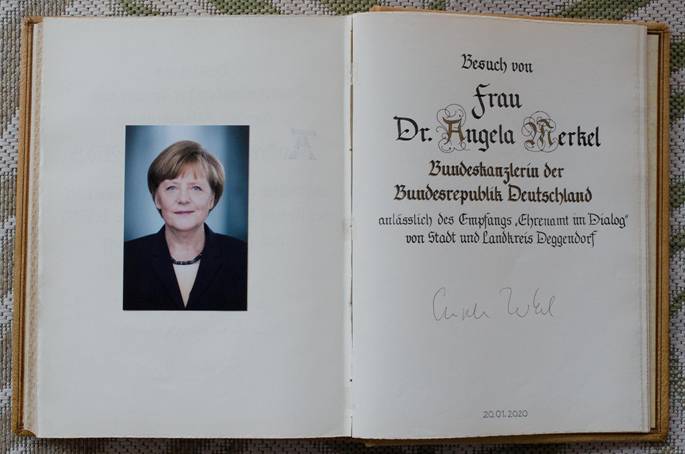 Besuch von
Frau
Dr. Angela Merkel
Bundeskanzlerin der
Bundesrepublik Deutschland
anlässlich des Empfangs „Ehrenamt im Dialog"
von Stadt und Landkreis Deggendorf
Angela Merkel
20.01.2020